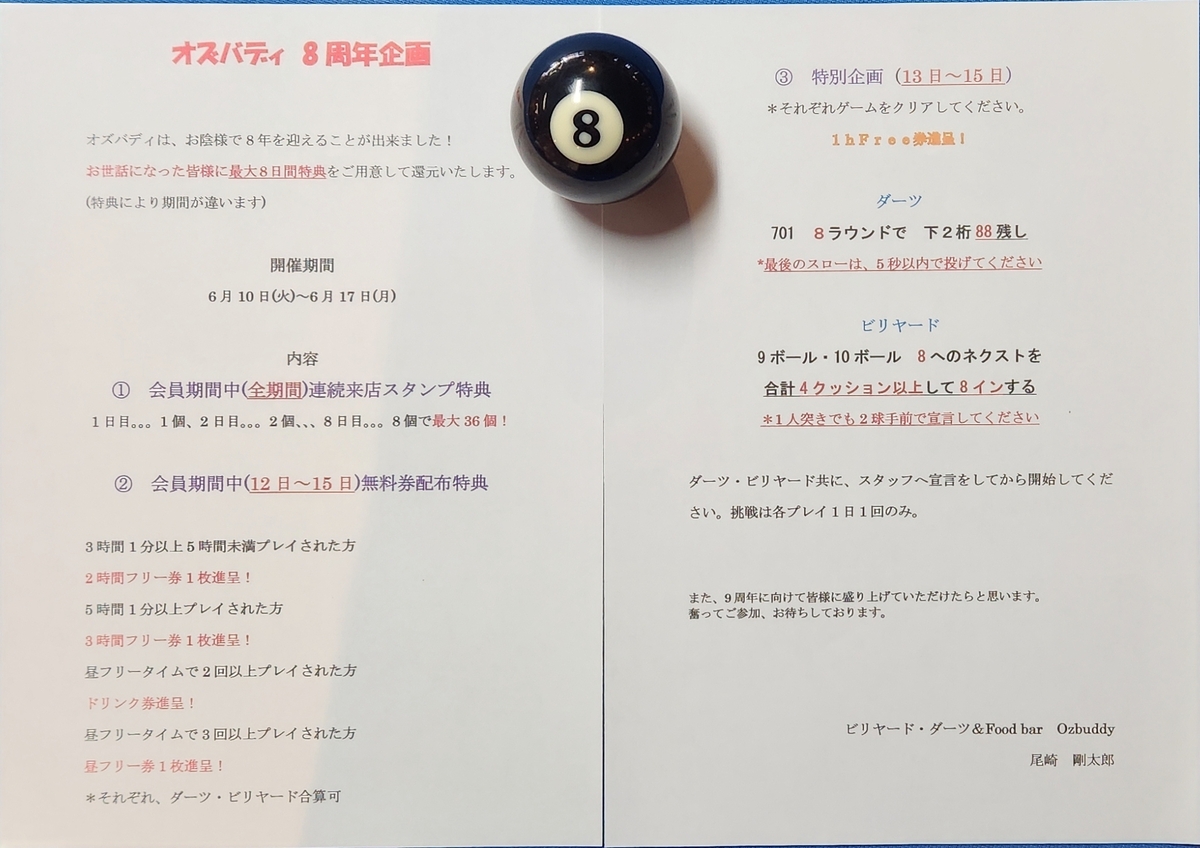 オズバディ 8周年企画
オズバディは、お陰様で8年を迎えることが出来ました！
お世話になった皆様に最大8日間特典をご用意して還元いたします。
(特典により期間が違います)
開催期間
6月10日(火)～6月17日(月)
内容
① 会員期間中(全期間)連続来店スタンプ特典
1日目｡｡｡1個、2日目｡｡｡2個､､､8日目｡｡｡8個で最大36個！
② 会員期間中(12日～15日)無料券配布特典
3時間1分以上5時間未満プレイされた方
2時間フリー券1枚進呈！
5時間1分以上プレイされた方
3時間フリー券1枚進呈！
昼フリータイムで2回以上プレイされた方
ドリンク券進呈！
昼フリータイムで3回以上プレイされた方
昼フリー券1枚進呈！
＊それぞれ、ダーツ・ビリヤード合算可
8
③ 特別企画（13日～15日）
＊それぞれゲームをクリアしてください。
1hFree券進呈！
ダーツ
701 8ラウンドで 下2桁88残し
*最後のスローは、5秒以内で投げてください
ビリヤード
9ボール・10ボール 8へのネクストを
合計4クッション以上して8インする
＊1人突きでも2球手前で宣言してください
ダーツ・ビリヤード共に、スタッフへ宣言をしてから開始してくだ
さい。挑戦は各プレイ1日1回のみ。
また、9周年に向けて皆様に盛り上げていただけたらと思います。
奮ってご参加、お待ちしております。
ビリヤード・ダーツ＆Food bar Ozbuddy
尾崎 剛太郎